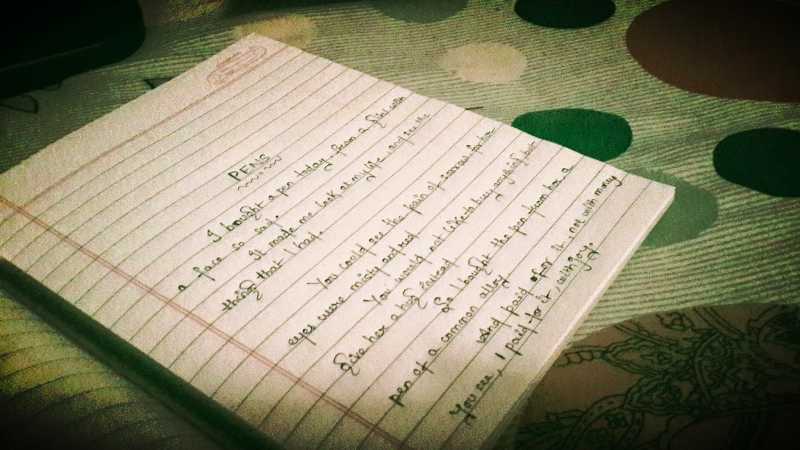 PENS
I bought a pen today, from a girl with
a face so sad.
It made me look at my life, and see the
thing that I had.
You could see the pain of sorrow, for her
eyes were misty and red.
You would not like to buy anything, but
give her a
So I bought the pen from her, a
pen of a common alloy
paid for it not with money
You see, I paid for it, with joy.